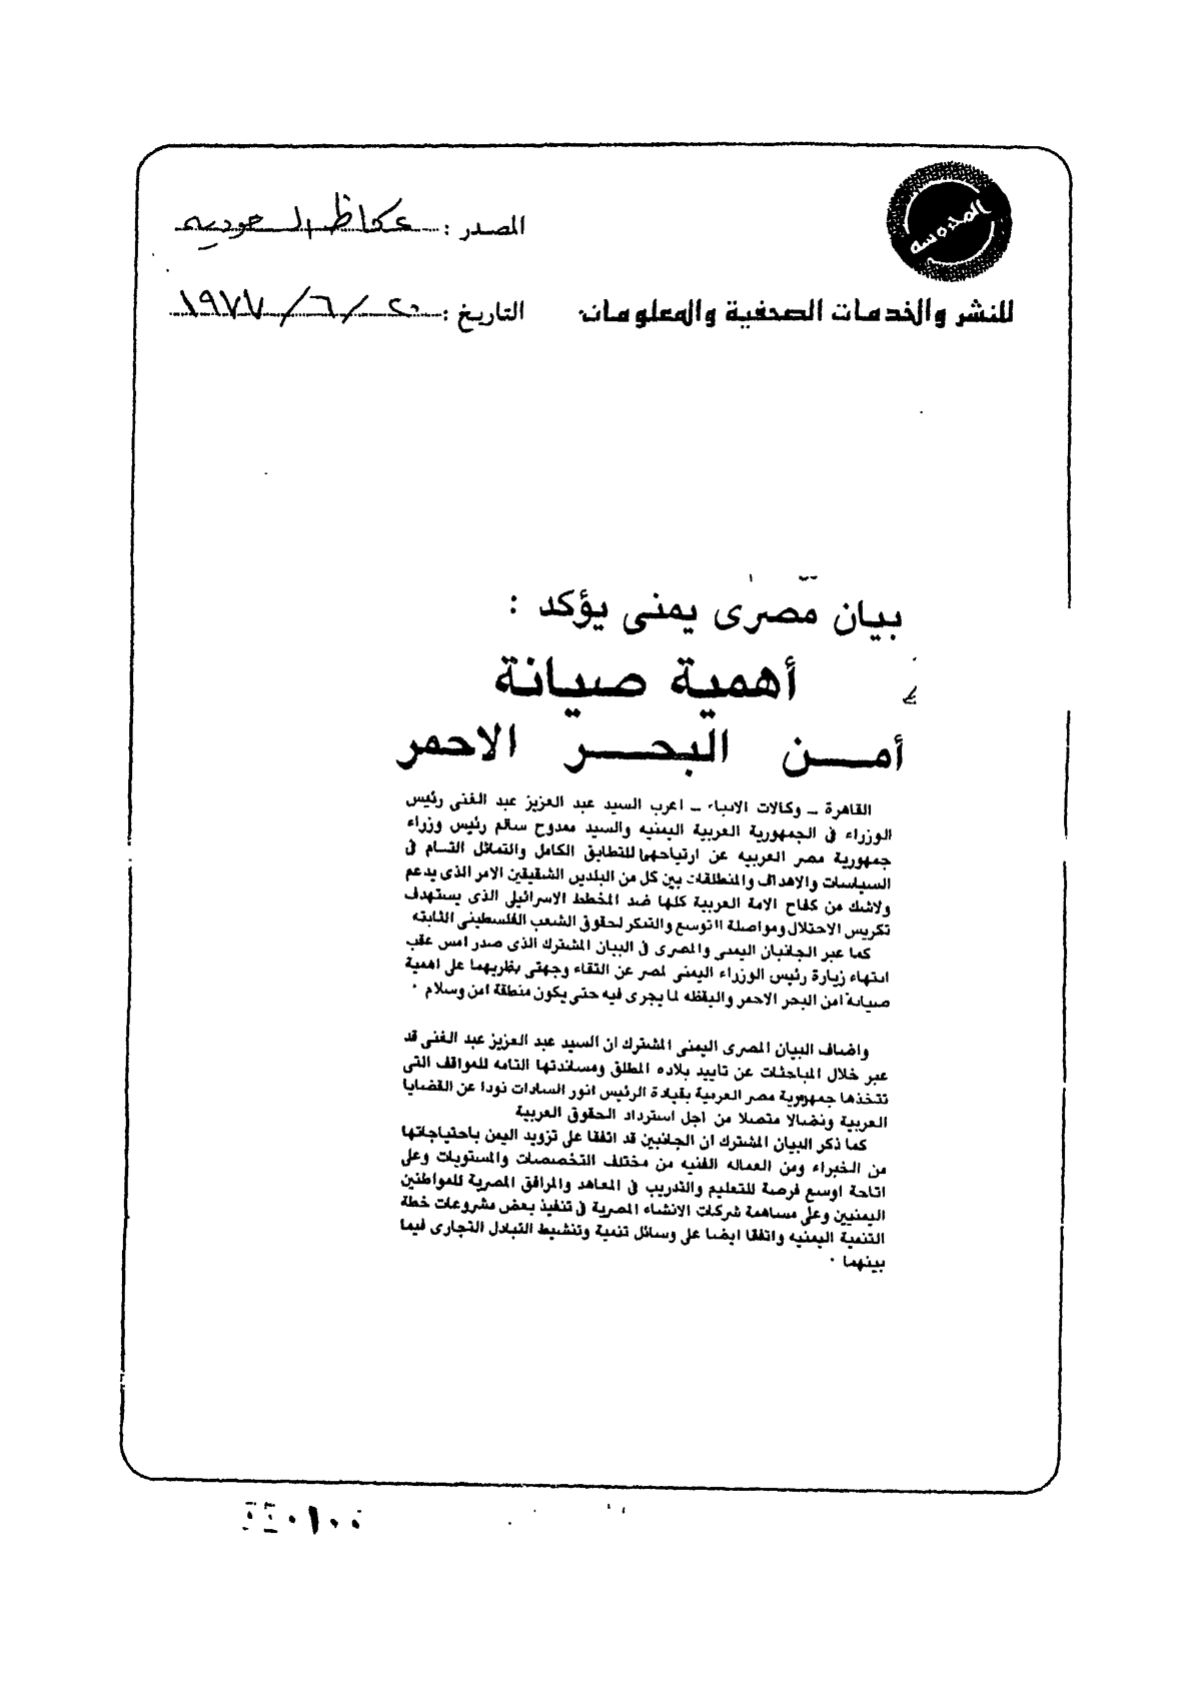 المحروسه
المصدر : عكاظ السعوديه
للنشر والخدمات الصحفية والمعلومات
التاريخ : ٢٠ / ٦ / ١٩٧٧
بيان مصرى يمنى يؤكد :
أهمية صيانة
أمن البحر الاحمر
القاهرة ــ وكالات الانباء ــ اعرب السيد عبد العزيز عبد الغنى رئيس
الوزراء فى الجمهورية العربية اليمنيه والسيد ممدوح سالم رئيس وزراء
جمهورية مصر العربيه عن ارتياحهما للتطابق الكامل والتماثل التام فى
السياسات والاهداف والمنطلقات بين كل من البلدين الشقيقين الامر الذى يدعم
ولاشك من كفاح الامة العربية كلها ضد المخطط الاسرائيلى الذى يستهدف
تكريس الاحتلال ومواصلة التوسع والتنكر لحقوق الشعب الفلسطينى الثابته
كما عبر الجانبان اليمنى والمصرى فى البيان المشترك الذى صدر امس عقب
انتهاء زيارة رئيس الوزراء اليمنى لمصر عن التقاء وجهتى نظريهما على اهمية
صيانة امن البحر الاحمر واليقظه لما يجرى فيه حتى يكون منطقة امن وسلام ٠
واضاف البيان المصرى اليمنى المشترك ان السيد عبد العزيز عبد الغنى قد
عبر خلال المباحثات عن تاييد بلاده المطلق ومساندتها التامه للمواقف التى
تتخذها جمهورية مصر العربية بقيادة الرئيس انور السادات نودا عن القضايا
العربية ونضالا متصلا من اجل استرداد الحقوق العربية
كما ذكر البيان المشترك ان الجانبين قد اتفقا على تزويد اليمن باحتياجاتها
من الخبراء ومن العماله الفنيه من مختلف التخصصات والمستويات وعلى
اتاحة اوسع فرصة للتعليم والتدريب فى المعاهد والمرافق المصرية للمواطنين
اليمنيين وعلى مساهمة شركات الانشاء المصرية فى تنفيذ بعض مشروعات خطة
التنمية اليمنيه واتفقا ايضا على وسائل تنمية وتنشيط التبادل التجارى فيما
بينهما ٠